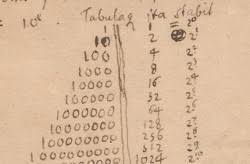 Tabulaq ita stabit
10e 1 1 = 2⁰
10 2 2¹
100 4 2²
1000 8 2³
10000 16 2⁴
100000 32 2⁵
1000000 64 2⁶
10000000 128 2⁷
100000000 256 2⁸
1000000000 512 2⁹
1024